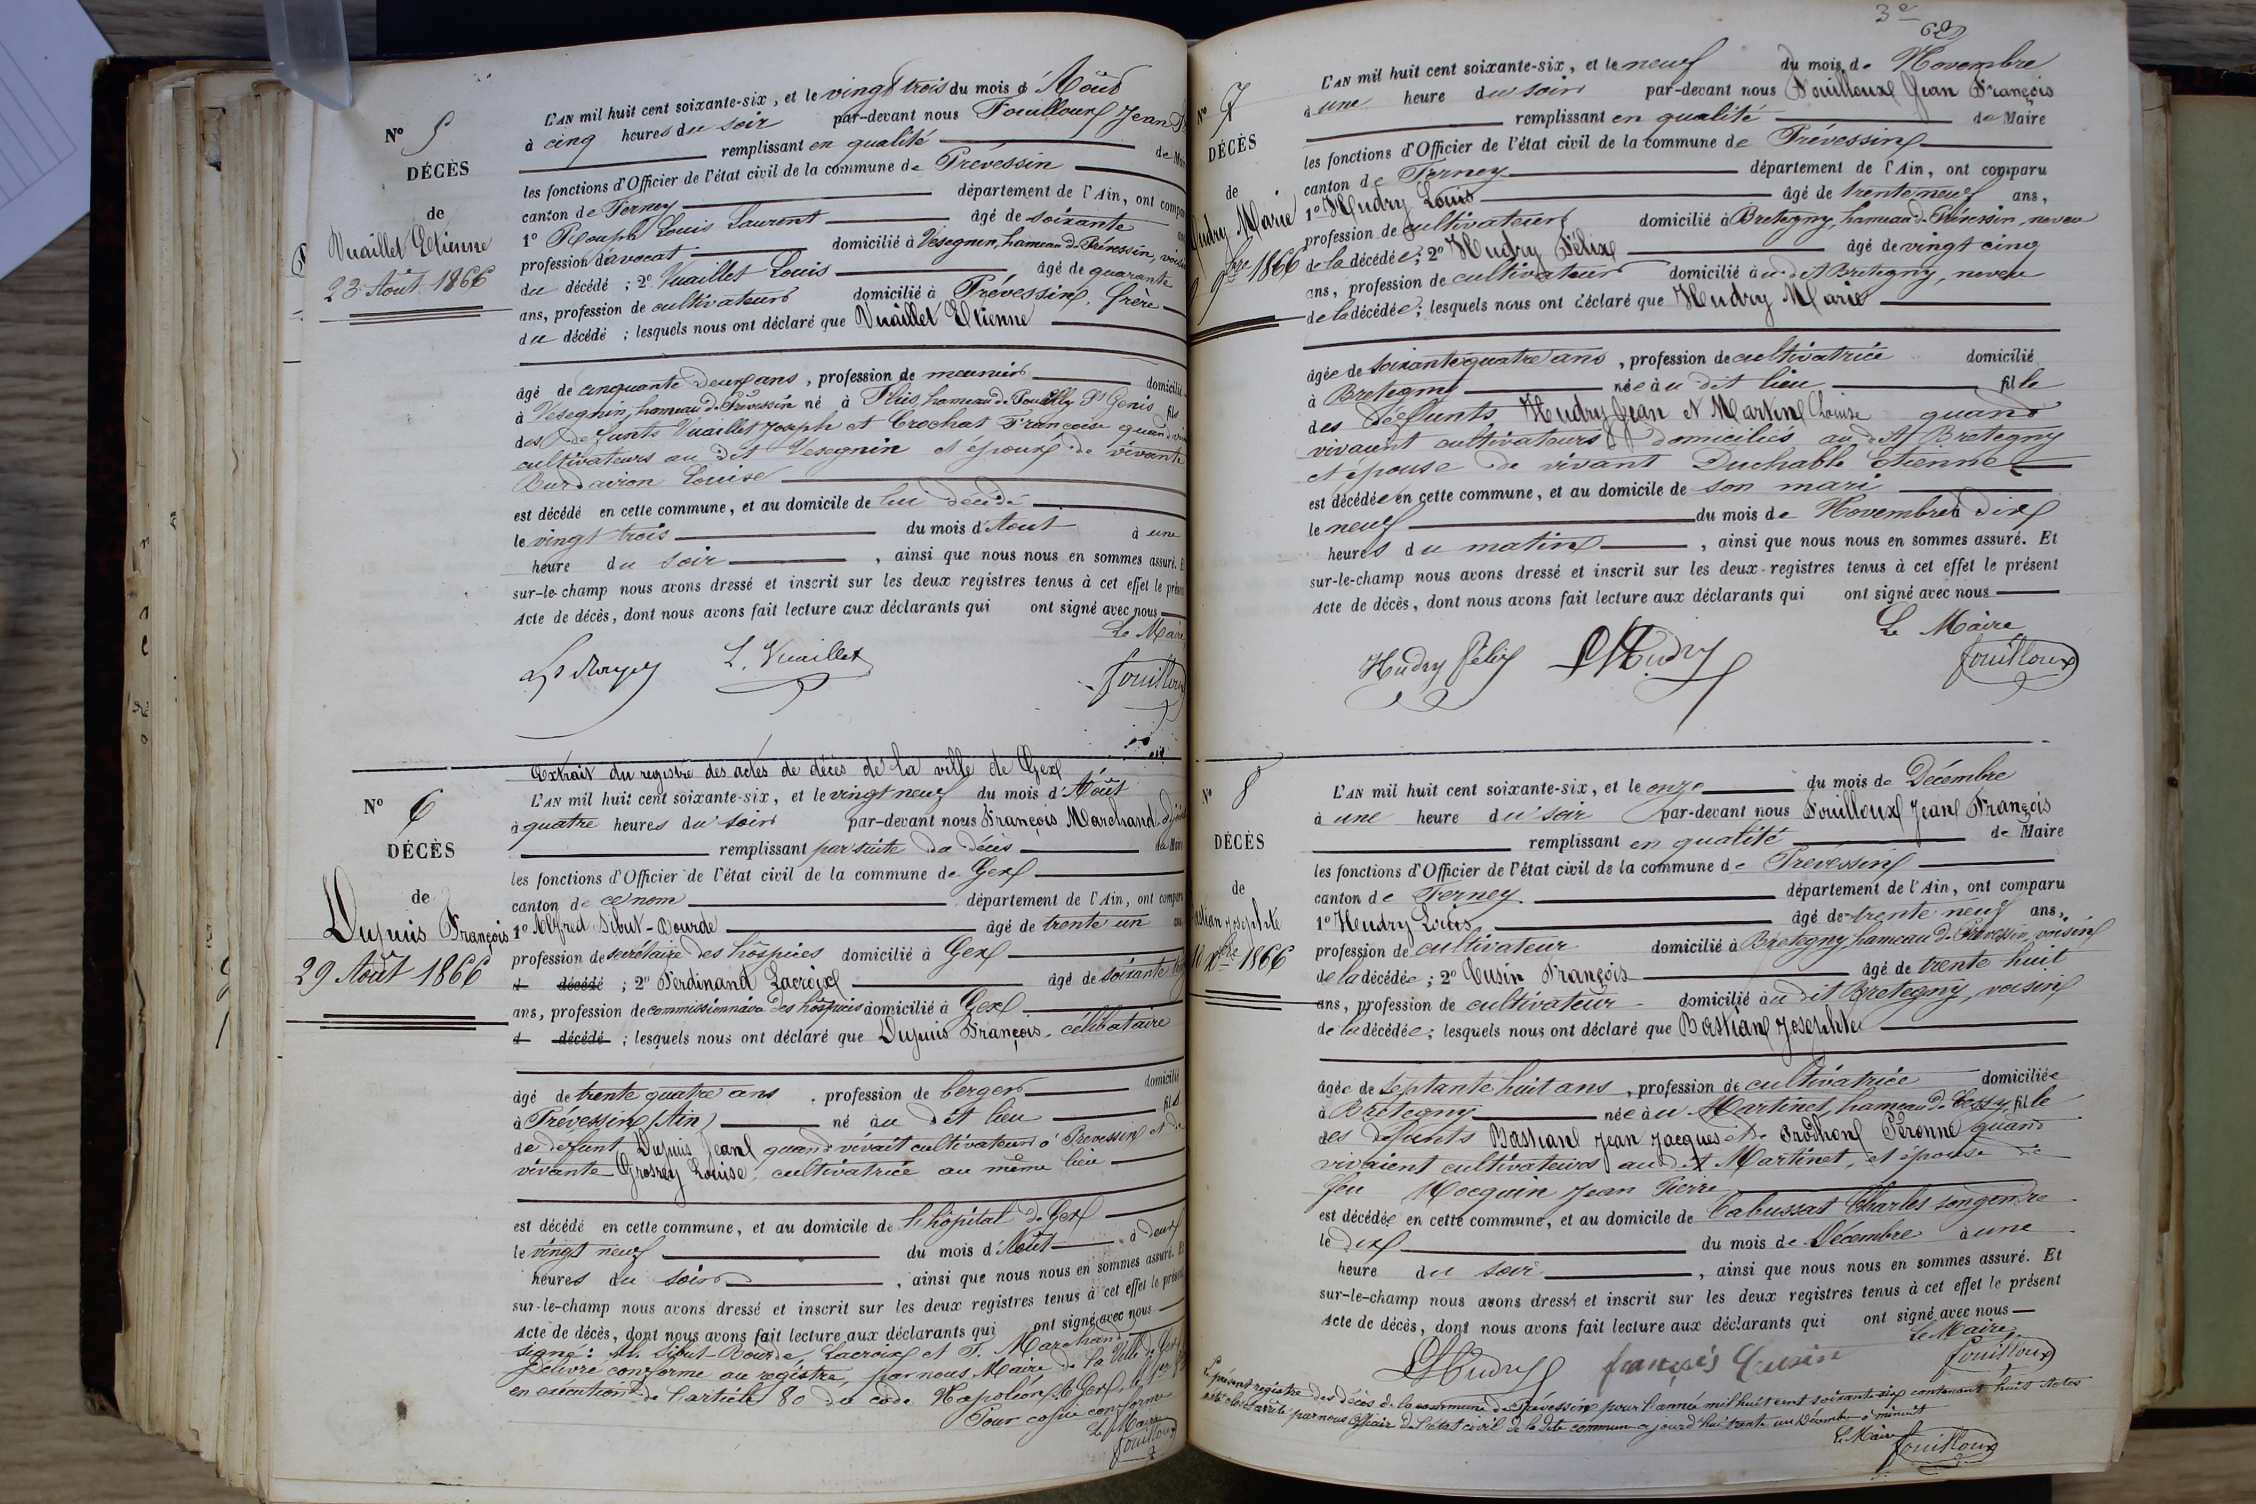 Nº 5
DÉCÈS
de
Vuaillet Etienne
23 Août 1866
L'AN mil huit cent soixante-six, et le vingt trois du mois d'Août
à cinq heures du soir par-devant nous Fouilloux Jean
remplissant en qualité de
les fonctions d'Officier de l'état civil de la commune de Prévessin
canton de Ferney département de l'Ain, ont
1º Louis Laurent âgé de soixante
profession d'avocat domicilié à Vesegnin, hameau de Prévessin,
du décédé ; 2º Vuaillet Louis âgé de quarante
ans, profession de cultivateur domicilié à Prévessin, frère
du décédé ; lesquels nous ont déclaré que Vuaillet Etienne
âgé de cinquante deux ans, profession de meunier
à Vesegnin, hameau de Prévessin né à Flies, hameau de Pouilly St Genis fils
des défunts Vuaillet Joseph et Crochat Françoise quand
cultivateurs au dit Vesegnin et époux de vivante
Burdavron Louise
est décédé en cette commune, et au domicile de lui décédé
le vingt trois du mois d'Aout à une
heure du soir, ainsi que nous nous en sommes assuré.
sur-le-champ nous avons dressé et inscrit sur les deux registres tenus à cet effet le
Acte de décès, dont nous avons fait lecture aux déclarants qui ont signé avec nous
Le Maire
L. Vuaillet
fouilloux
Extrait du registre des actes de décès de la ville de Gex
Nº 6
DÉCÈS
de
Dupuis François
29 Août 1866
L'AN mil huit cent soixante-six, et le vingt neuf du mois d'Août
à quatre heures du soir par-devant nous François Marchand
remplissant par suite de décès
les fonctions d'Officier de l'état civil de la commune de Gex
canton de ce nom département de l'Ain, ont
1º Alfred Sibut-Bourde âgé de trente un
profession de secrétaire des hospices domicilié à Gex
d décédé ; 2º Ferdinand Lacroix âgé de soixante
ans, profession de commissionnaire des hospices domicilié à Gex
d décédé ; lesquels nous ont déclaré que Dupuis François, célibataire
âgé de trente quatre ans, profession de berger domicilié
à Prévessin (Ain) né au dit lieu fils
de défunt Dupuis Jean quand vivait cultivateur à Prevessin et de
vivante Grosrey Louise, cultivatrice au même lieu
est décédé en cette commune, et au domicile de l'hôpital de Gex
le vingt neuf du mois d'Août à deux
heures du soir, ainsi que nous nous en sommes assuré. Et
sur-le-champ nous avons dressé et inscrit sur les deux registres tenus à cet effet le présent
Acte de décès, dont nous avons fait lecture aux déclarants qui ont signé avec nous
signé : Al. Sibut-Bourde, Lacroix et F. Marchand
Délivré conforme au régistre, par nous Maire de la Ville de Gex
en exécution de l'article 80 du code Napoléon. Gex, le
Pour copie conforme
Le Maire
fouilloux
3e
62
Nº 7
DÉCÈS
de
Hudry Marie
9 9bre 1866
L'AN mil huit cent soixante-six, et le neuf du mois de Novembre
à une heure du soir par-devant nous Fouilloux Jean François
remplissant en qualité de Maire
les fonctions d'Officier de l'état civil de la commune de Prévessin
canton de Ferney département de l'Ain, ont comparu
1º Hudry Louis âgé de trente neuf ans,
profession de cultivateur domicilié à Bretegny, hameau de Prévessin, neveu
de la décédée ; 2º Hudry Félix âgé de vingt cinq
ans, profession de cultivateur domicilié au dit Bretegny, neveu
de la décédée ; lesquels nous ont déclaré que Hudry Marie
âgée de soixante quatre ans, profession de cultivatrice domicilié
à Bretegny née au dit lieu fille
des défunts Hudry Jean et Martin Louise quand
vivaient cultivateurs domiciliés au dit Bretegny
et épouse de vivant Duchable Etienne
est décédée en cette commune, et au domicile de son mari
le neuf du mois de Novembre à dix
heures du matin, ainsi que nous nous en sommes assuré. Et
sur-le-champ nous avons dressé et inscrit sur les deux registres tenus à cet effet le présent
Acte de décès, dont nous avons fait lecture aux déclarants qui ont signé avec nous
Le Maire
Hudry Félix L Hudry fouilloux
Nº 8
DÉCÈS
de
Bastian Josephte
10 Xbre 1866
L'AN mil huit cent soixante-six, et le onze du mois de Décembre
à une heure du soir par-devant nous Fouilloux Jean François
remplissant en qualité de Maire
les fonctions d'Officier de l'état civil de la commune de Prévessin
canton de Ferney département de l'Ain, ont comparu
1º Hudry Louis âgé de trente neuf ans,
profession de cultivateur domicilié à Bretegny, hameau de Prévessin, voisin
de la décédée ; 2º Cusin François âgé de trente huit
ans, profession de cultivateur domicilié au dit Bretegny, voisin
de la décédée ; lesquels nous ont déclaré que Bastian Josephte
âgée de septante huit ans, profession de cultivatrice domiciliée
à Bretegny née au Martinet, hameau de Cessy, fille
des défunts Bastian Jean Jacques et de Prodhon Péronne quand
vivaient cultivateurs au dit Martinet, et épouse de
feu Mocquin Jean Pierre
est décédée en cette commune, et au domicile de Cabussat Charles son gendre
le dix du mois de Décembre à une
heure du soir, ainsi que nous nous en sommes assuré. Et
sur-le-champ nous avons dressé et inscrit sur les deux registres tenus à cet effet le présent
Acte de décès, dont nous avons fait lecture aux déclarants qui ont signé avec nous
Le Maire
L Hudry françois Cusin fouilloux
Le présent registre des décès de la commune de Prévessin pour l'année mil huit cent soixante six contenant huit Actes
a été clos et arrêté par nous Officier de l'état civil de la dite commune aujourd'hui trente un Décembre à minuit
Le Maire
fouilloux